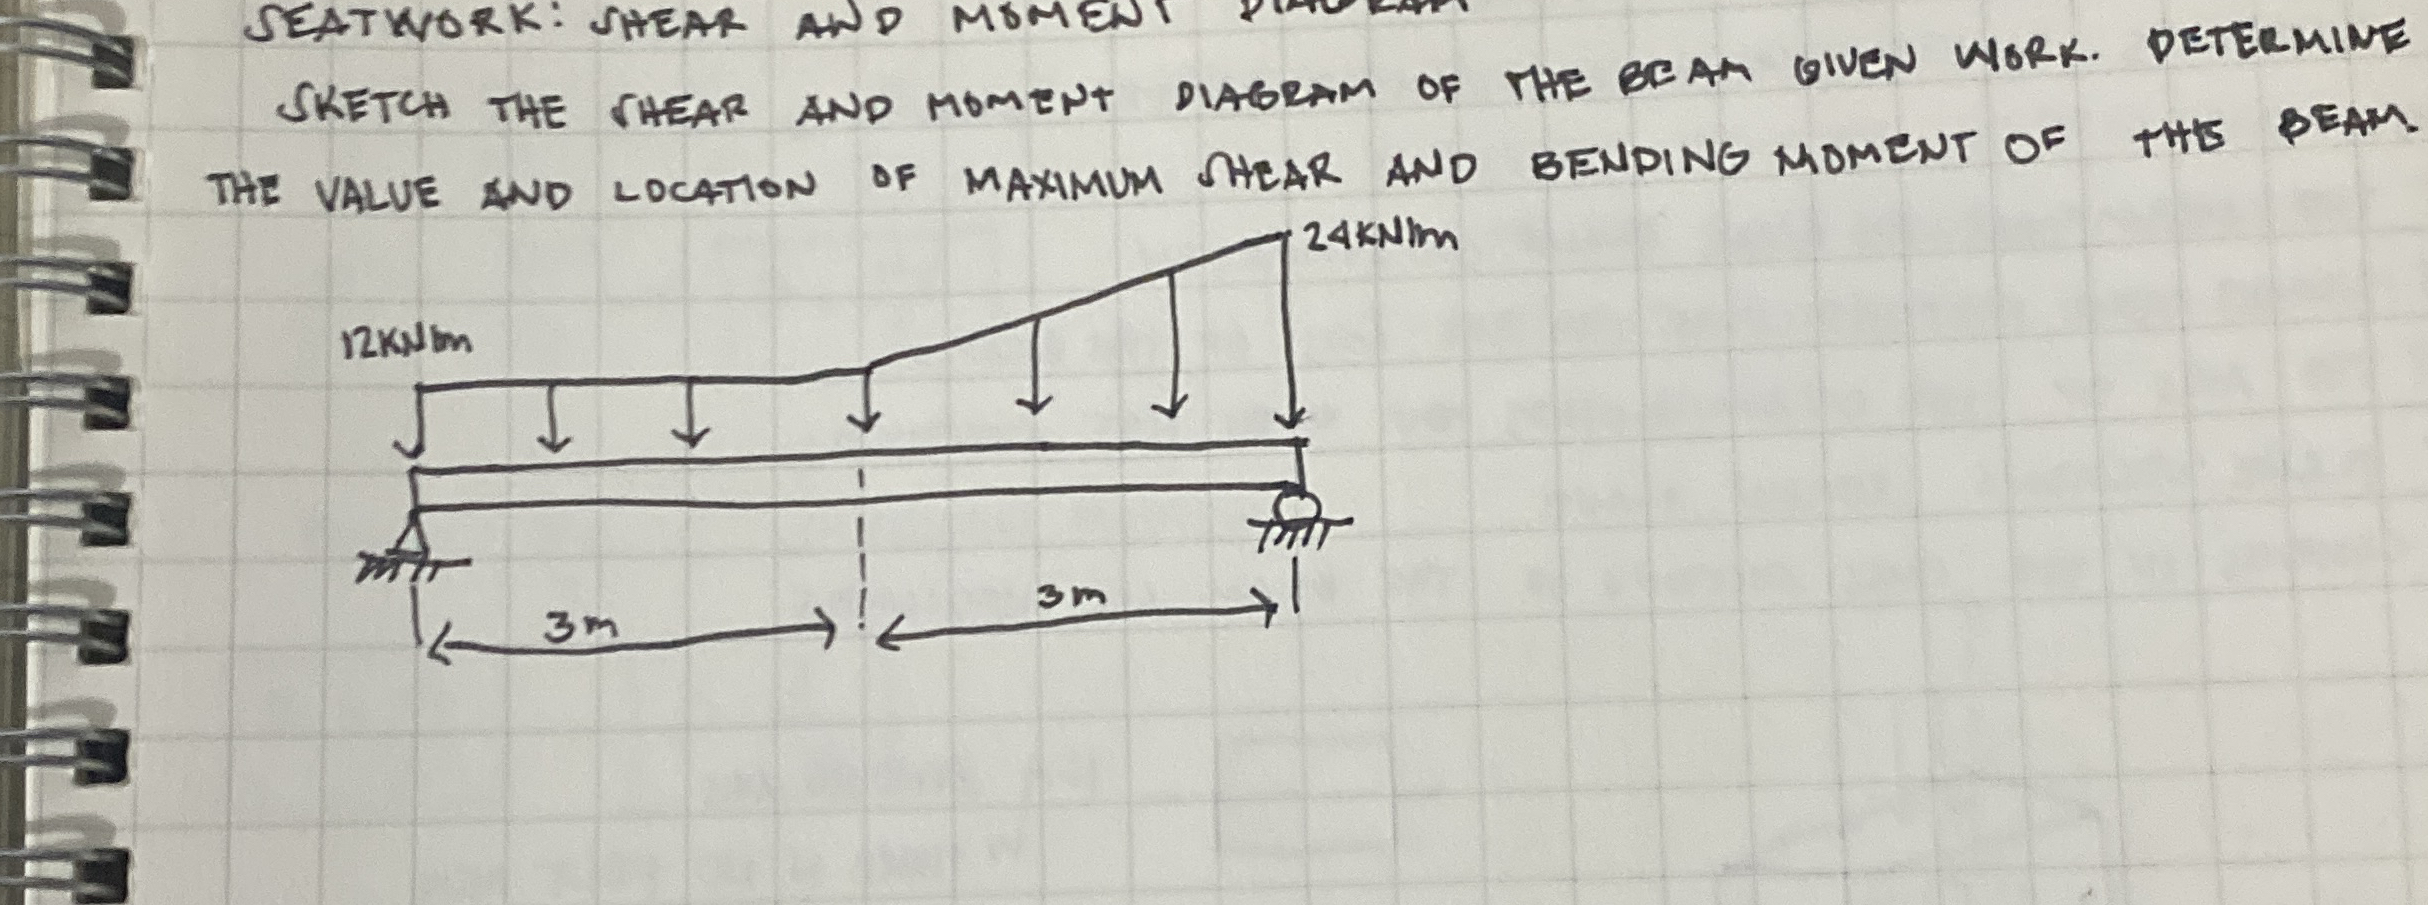 SEATWORK: SHEAR AND MOMENT DIAGRAM
SKETCH THE SHEAR AND MOMENT DIAGRAM OF THE BEAM GIVEN WORK. DETERMINE
THE VALUE AND LOCATION OF MAXIMUM SHEAR AND BENDING MOMENT OF THE BEAM.
24KN/m
12KN/m
3m
3m